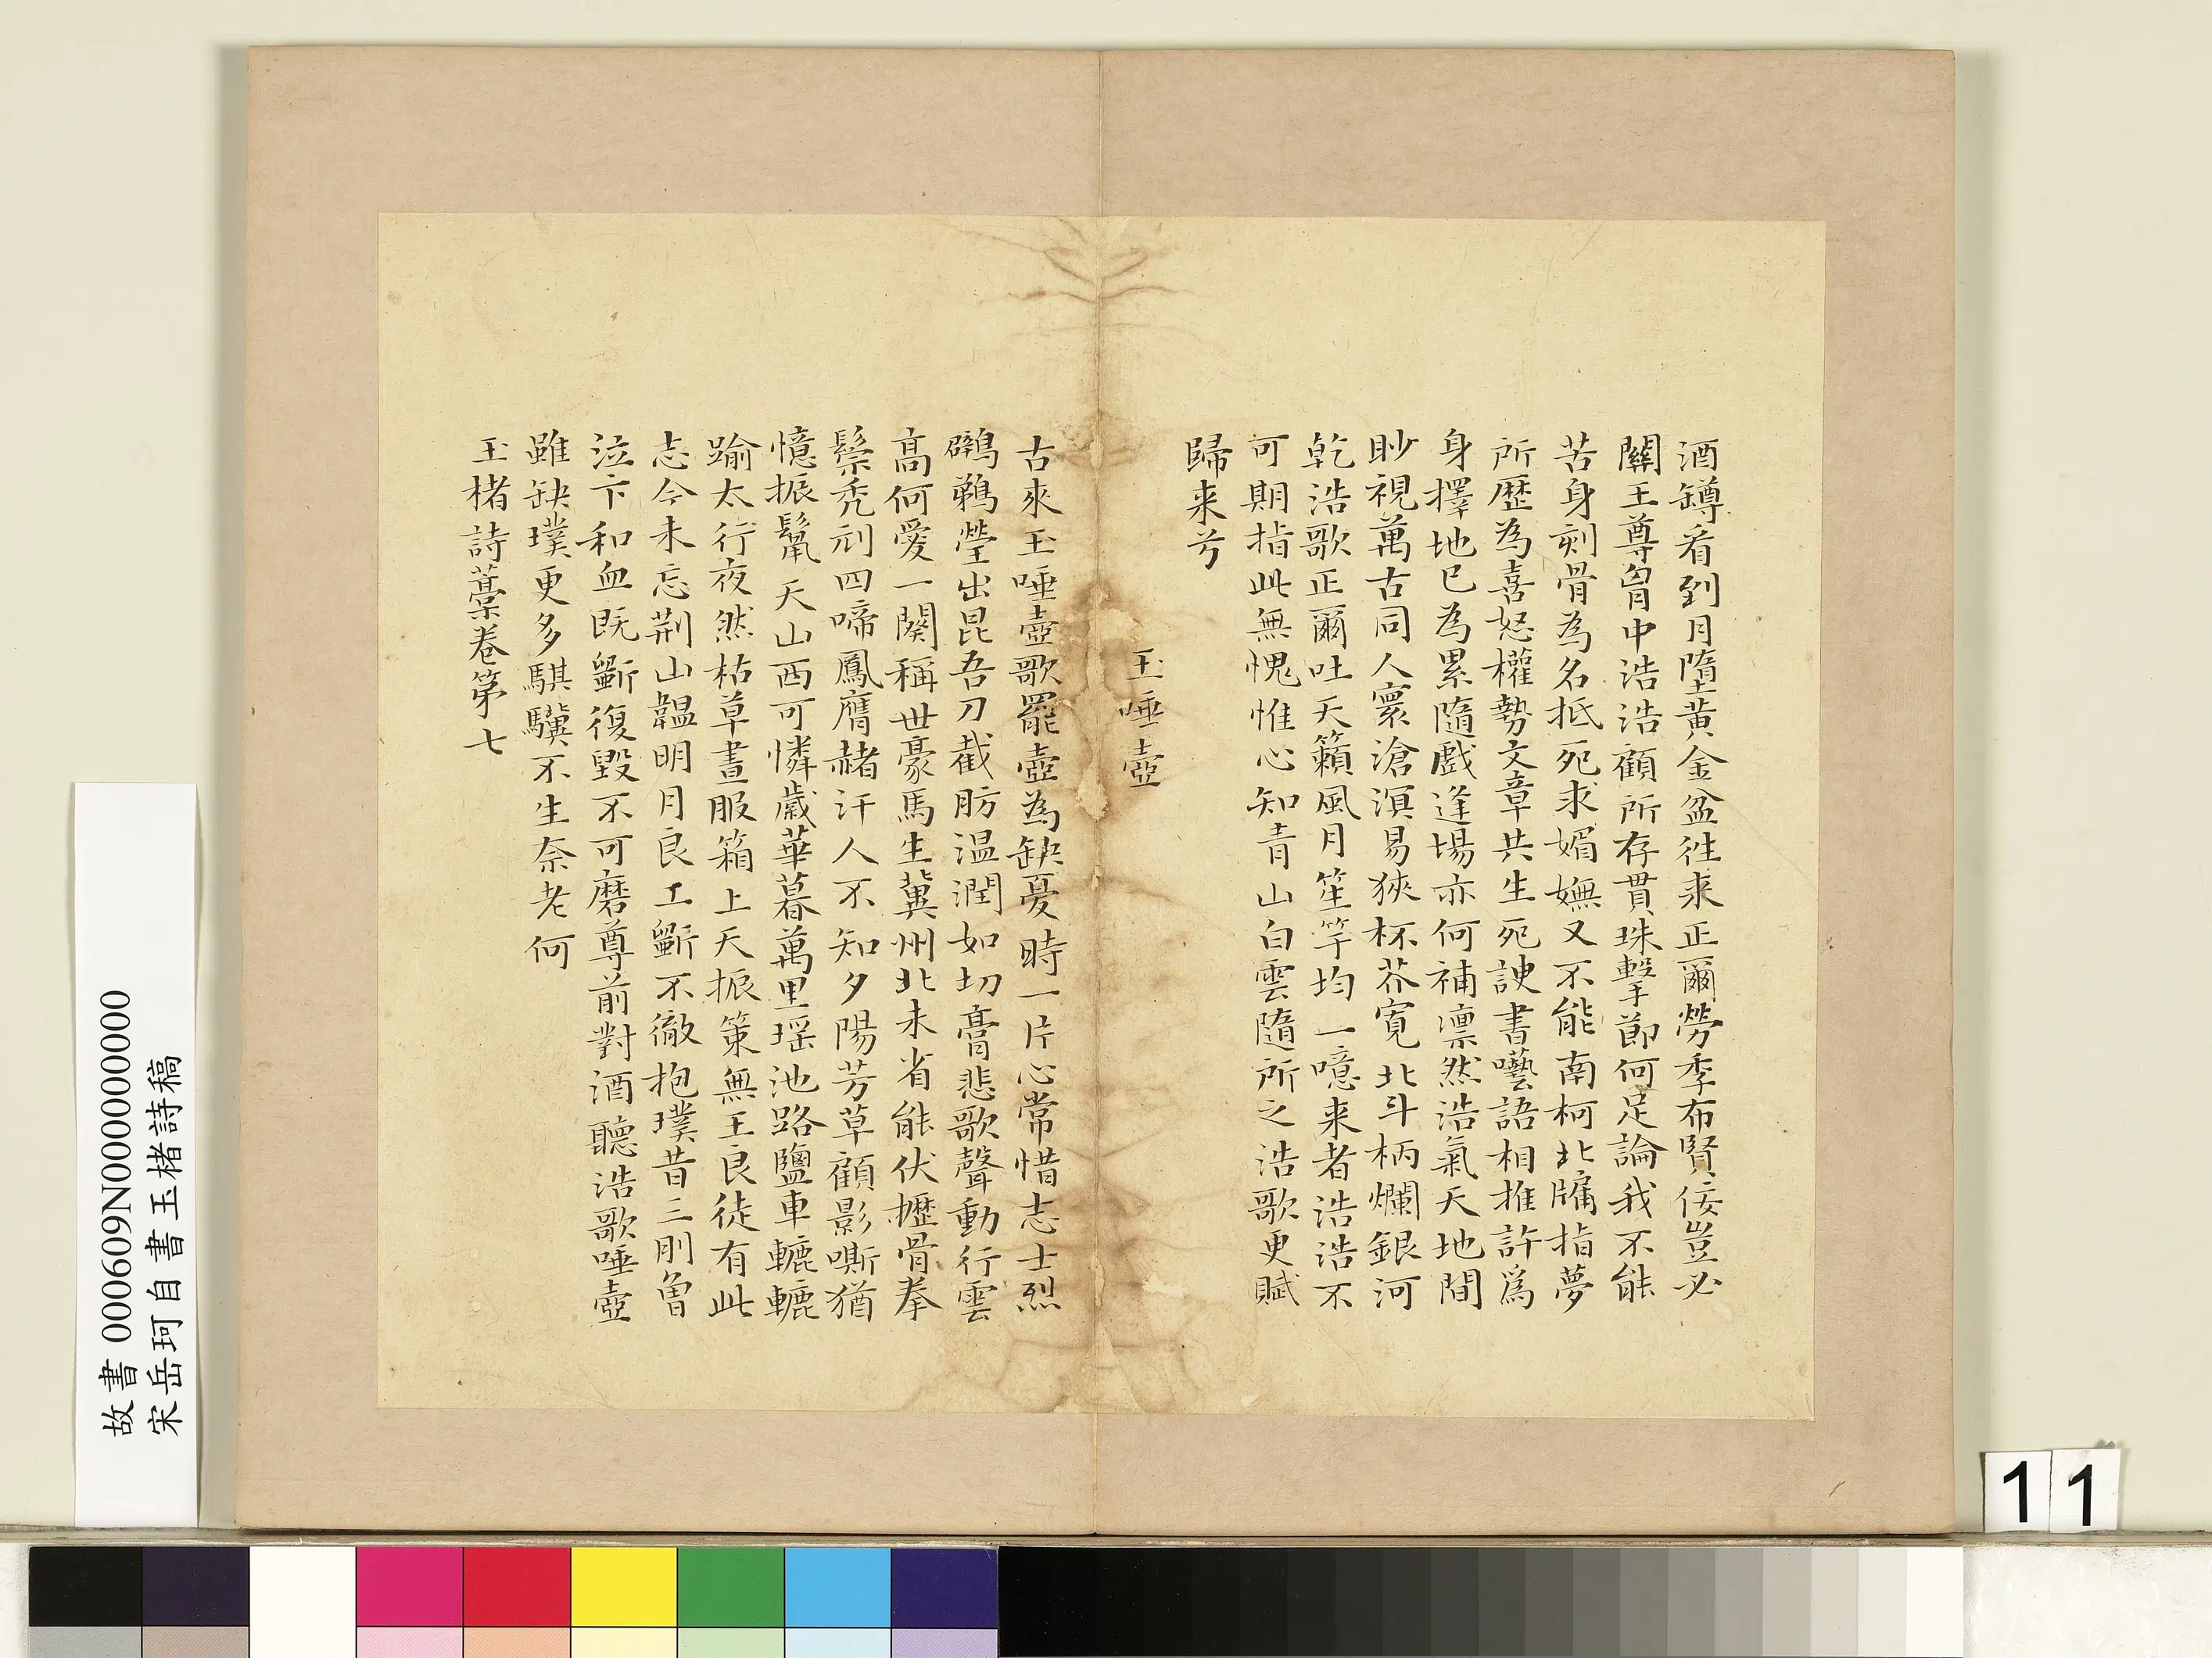 酒罇看到月墮黃金盆往来正爾勞季布賢佞豈必
關王尊胷中浩浩顧所存貫珠擊節何足論我不能
苦身刻骨為名抵死求媚嫵又不能南柯北牖指夢
所歴為喜怒權勢文章共生死諛書囈語相推許爲
身擇地已為累隨戲逢場亦何補凛然浩氣天地間
眇視萬古同人寰滄溟易狹杯芥寛北斗柄爛銀河
乾浩歌正爾吐天籟風月笙竽均一噫来者浩浩不
可期指此無愧惟心知青山白雲隨所之浩歌更賦
歸来兮
玉唾壺
古來玉唾壺歌罷壺為缺憂時一片心常惜志士烈
鸊鵜瑩出昆吾刀截肪温潤如切膏悲歌聲動行雲
高何愛一闋稱世豪馬生冀州北未省能伏櫪骨拳
鬃禿刓四啼鳳膺赭汗人不知夕陽芳草顧影嘶猶
憶振鬣天山西可憐歲華暮萬里瑶池路鹽車轆轆
踰太行夜然枯草晝服箱上天振策無王良徒有此
志今未忘荊山韞明月良工斵不徹抱璞昔三刖魯
泣卞和血既斵復毀不可磨尊前對酒聽浩歌唾壺
雖缺璞更多騏驥不生奈老何
玉楮詩藁卷第七
故書 000609N000000000
宋岳珂自書玉楮詩稿
11